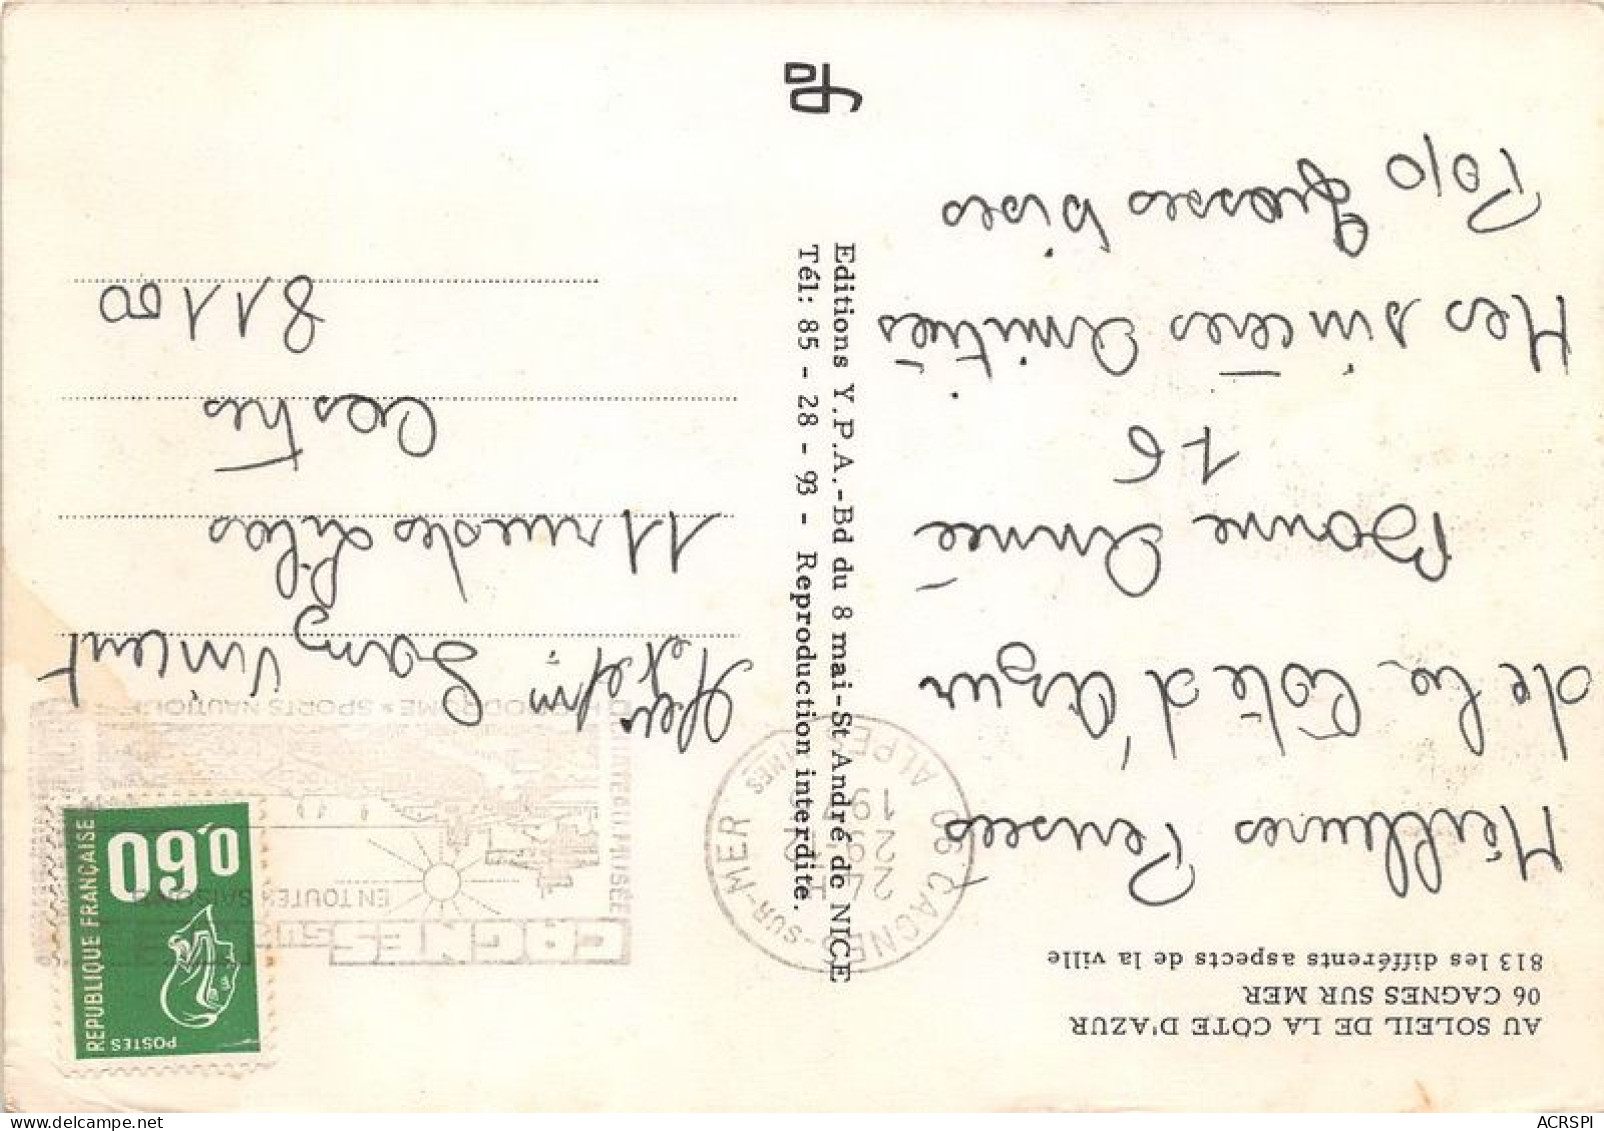 AU SOLEIL DE LA CÔTE D'AZUR
06 CAGNES SUR MER
813 les différents aspects de la ville
Meilleures Pensées
de la Côte d'Azur
Bonne Année
76
Mes sincères Amitiés
Popo Grosses bises
Editions Y.P.A.-Bd du 8 mai-St André de NICE
Tél: 85 - 28 - 93 - Reproduction interdite.
06 CAGNES-SUR-MER
ALPES MARITIMES
22-12
19
CAGNES SUR MER
EN TOUTES SAISONS
CHATEAU MUSÉE
HIPPODROME * SPORTS NAUTIQUES
POSTES
REPUBLIQUE FRANÇAISE
0,60
Mr et Mme Sanz Vincent
11 rue des Lilas
Castres
81100
ACRSPI